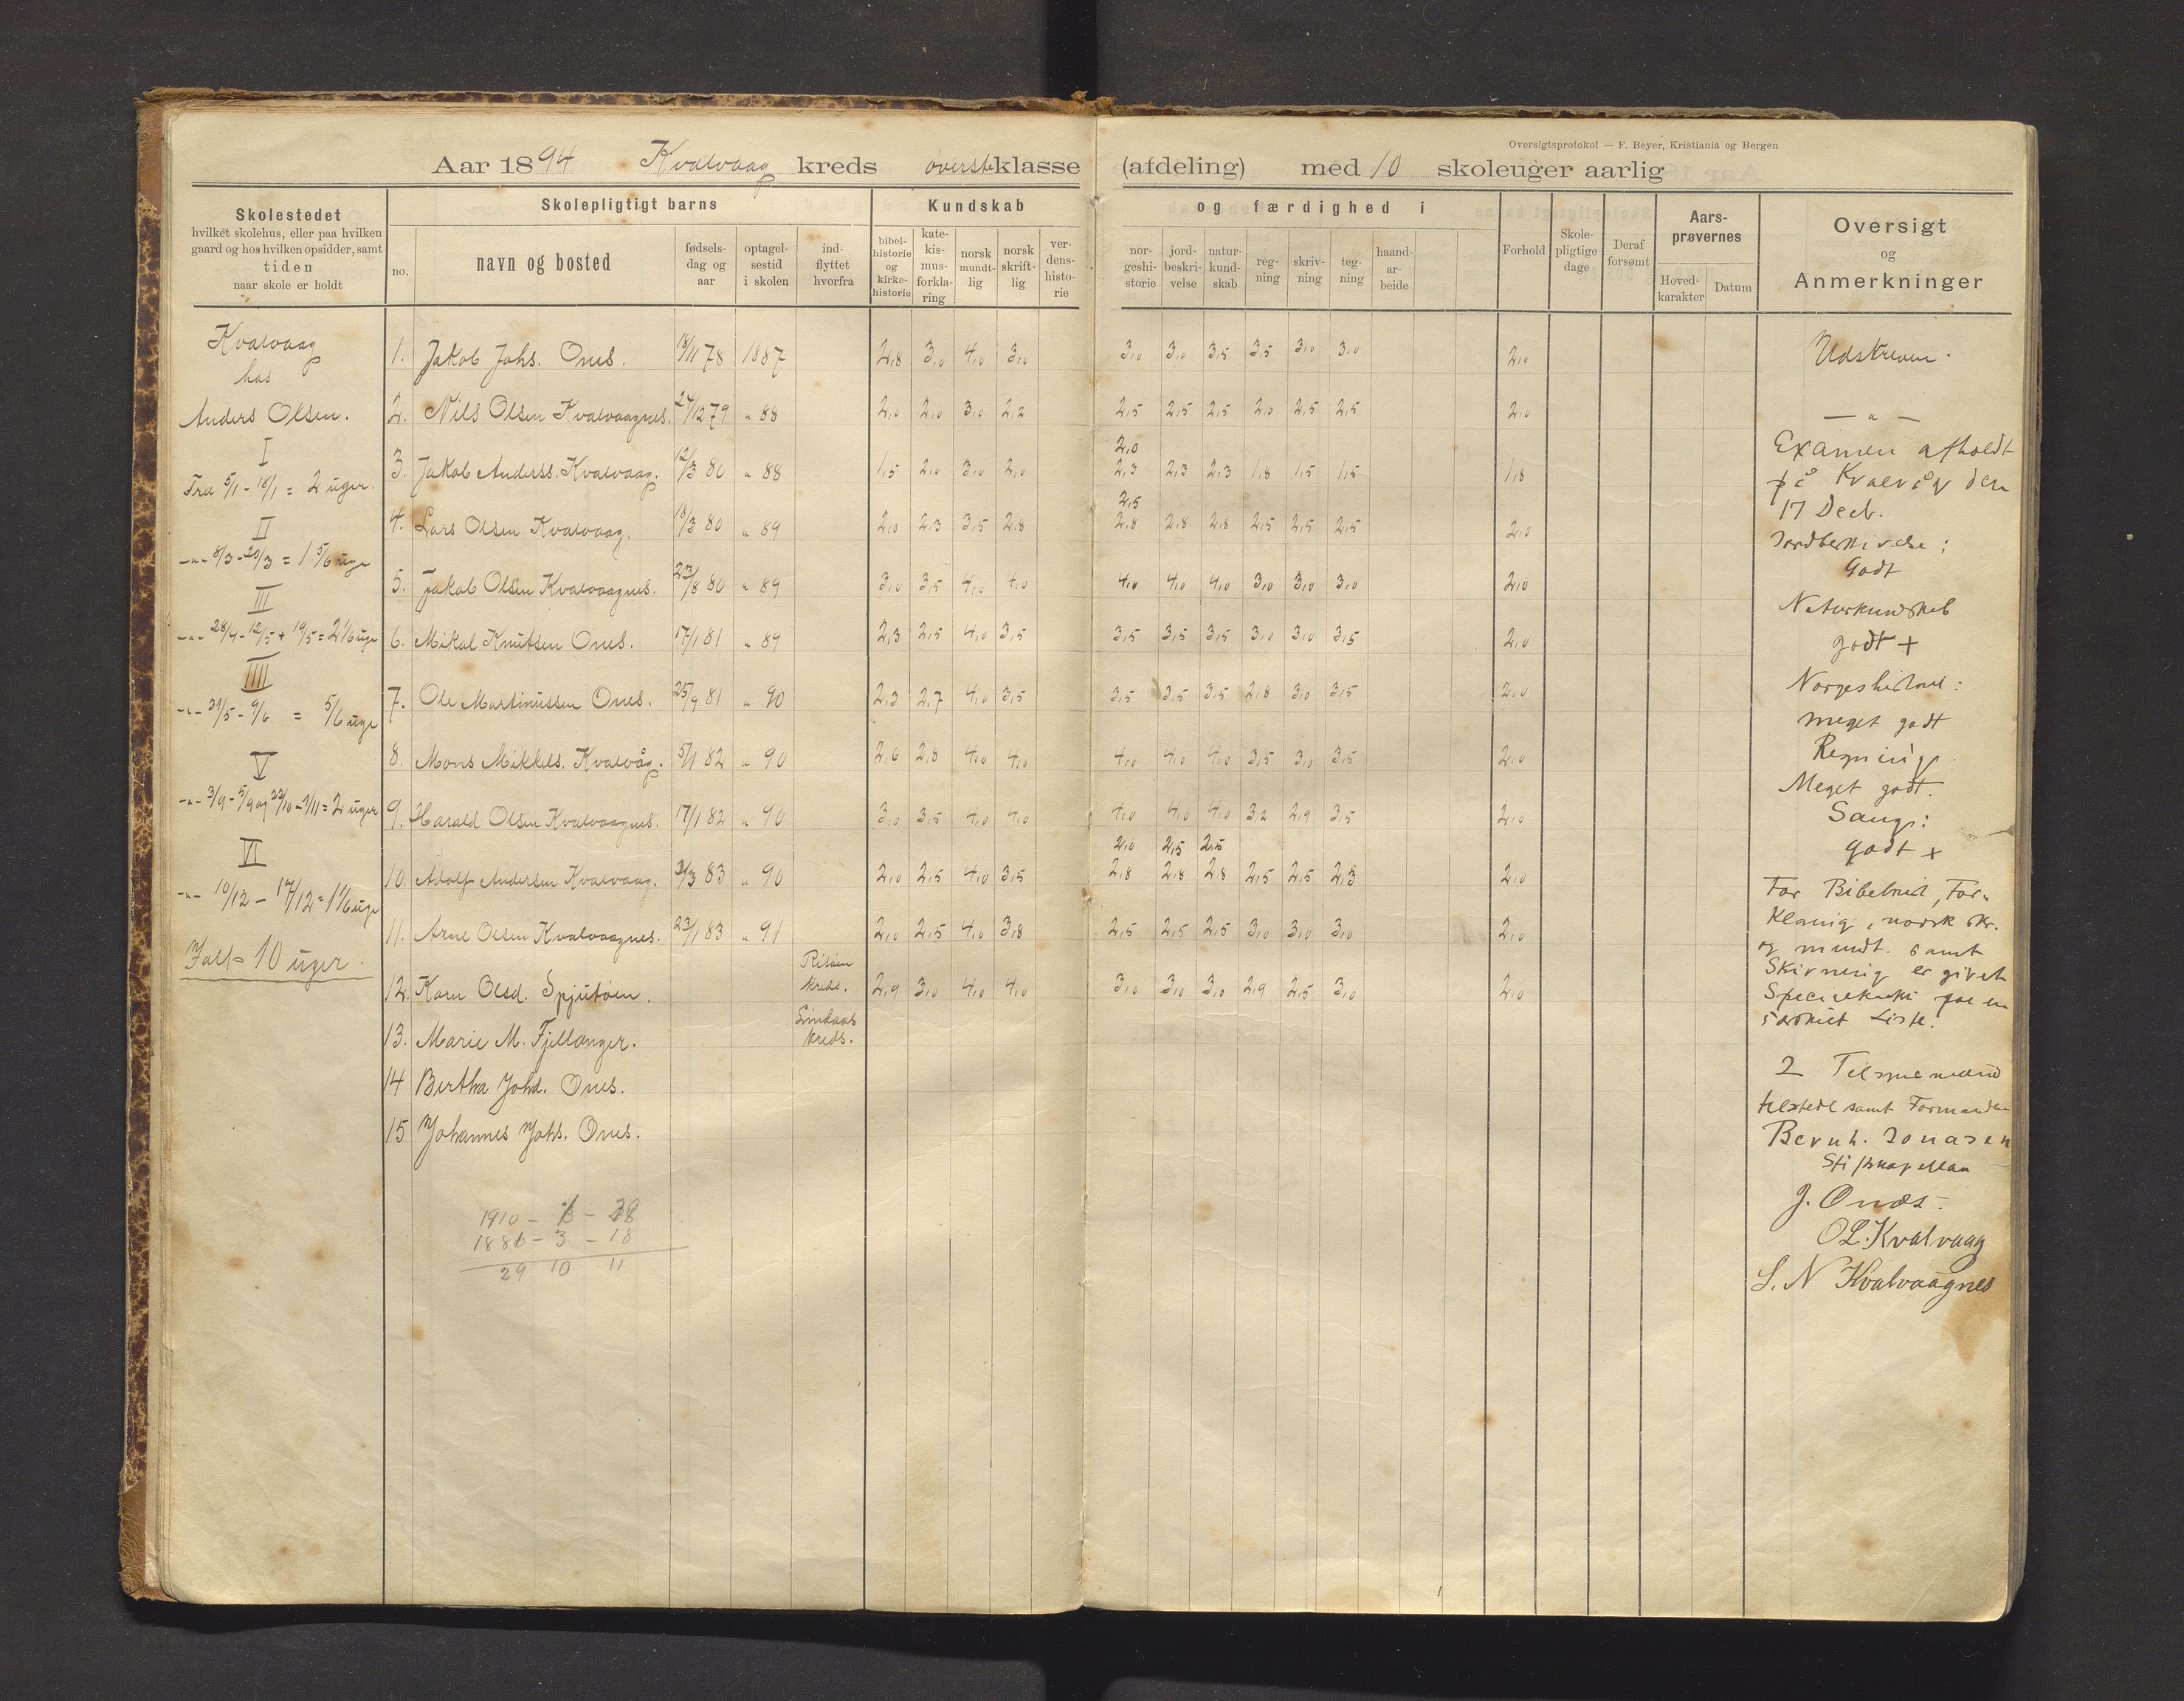 Oversigtsprotokol — F. Beyer, Kristiania og Bergen
Aar 1894 Kvalvaag kreds øverste klasse (afdeling) med 10 skoleuger aarlig
Skolestedet
hvilket skolehus, eller paa hvilken
gaard og hos hvilken opsidder, samt
tiden
naar skole er holdt
Skolepligtigt barns
no.
navn og bosted
fødsels-
dag og
aar
optagel-
sestid
i skolen
ind-
flyttet
hvorfra
Kundskab
bibel-
historie
og
kirke-
historie
kate-
kis-
mus-
forkla-
ring
norsk
mundt-
lig
norsk
skrift-
lig
ver-
dens-
histo-
rie
og færdighed i
nor-
geshi-
storie
jord-
beskri-
velse
natur-
kund-
skab
reg-
ning
skriv-
ning
teg-
ning
haand-
ar-
beide
Forhold
Skole-
pligtige
dage
Deraf
forsømt
Aars-
prøvernes
Hoved-
karakter
Datum
Oversigt
og
Anmerkninger
Kvalvaag
hos
Anders Olsen.
I
Fra 5/1 - 18/1 = 2 uger.
II
-"- 8/3 - 20/3 = 1 5/6 uge
III
-"- 28/4 - 12/5 + 19/5 = 2 1/6 uge
IIII
-"- 31/5 - 9/6 = 5/6 uge
V
-"- 3/9 - 5/9 og 22/10 - 1/11 = 2 uger
VI
-"- 10/12 - 17/12 = 1 1/6 uge
Ialt = 10 uger.
1. Jakob Johs. Ones. 18/11 78 1887 2,8 3,0 4,0 3,0 3,0 3,0 3,5 3,5 3,0 3,0 2,0
2. Nils Olsen Kvalvaagnes. 24/12 79 " 88 2,0 2,0 3,0 2,2 2,5 2,5 2,5 2,0 2,5 2,5 2,0
2,0
3. Jakob Anderss. Kvalvaag. 12/3 80 " 88 1,5 2,0 3,0 2,0 2,3 2,3 2,3 1,8 1,5 1,5 1,8
2,5
4. Lars Olsen Kvalvaag. 18/3 80 " 89 2,0 2,3 3,5 2,8 2,8 2,8 2,8 2,5 2,5 2,5 2,0
5. Jakob Olsen Kvalvaagnes. 23/8 80 " 89 3,0 3,5 4,0 4,0 4,0 4,0 4,0 3,0 3,0 3,0 2,0
6. Mikal Knutsen Ones. 17/1 81 " 89 2,3 2,5 4,0 3,5 3,5 3,5 3,5 3,0 3,0 3,5 2,0
7. Ole Martinussen Ones. 25/9 81 " 90 2,3 2,7 4,0 3,5 3,5 3,5 3,5 2,8 3,0 3,5 2,0
8. Mons Mikkels. Kvalvåg. 5/1 82 " 90 2,6 2,8 4,0 4,0 4,0 4,0 4,0 3,5 3,0 3,5 2,0
9. Harald Olsen Kvalvaagnes. 17/1 82 " 90 3,0 3,5 4,0 4,0 4,0 4,0 4,0 3,2 2,9 3,5 2,0
2,0 2,5 2,5
10. Adolf Andersen Kvalvaag. 3/3 83 " 90 2,0 2,5 4,0 3,5 2,8 2,8 2,8 2,5 2,5 2,3 2,0
11. Arne Olsen Kvalvaagnes. 23/1 83 " 91 2,0 2,5 4,0 3,8 2,5 2,5 2,5 3,0 3,0 3,0 2,0
12. Karu Olsd. Spjutøen. kreds. 2,9 3,0 4,0 4,0 3,0 3,0 3,0 2,9 2,5 3,0 2,0
13. Marie M. Fjellanger. Lindaas kreds.
14 Bertha Johd. Ones.
15 Johannes Johs. Ones.
1910 - - 28
1881 - 3 - 18
29 10 11
Udskreven.
— " —
Examen afholdt
på Kvalvåg den
17 Decb.
Jordbeskrivelse:
Godt
Naturkundskab
godt +
Norgeshistorie:
meget godt
Regning
Meget godt.
Sang:
godt +
For Bibelhist, For-
klaring, norsk skr.
og mundt. samt
Skrivning er givet
Specialkarakt paa en
særskilt Liste.
2 Tilsynsmænd
tilstede samt Formanden
Bernh. Jonasen
Stiftskapellan
J. Onæs.
O L. Kvalvaag
L. N Kvalvaagnes